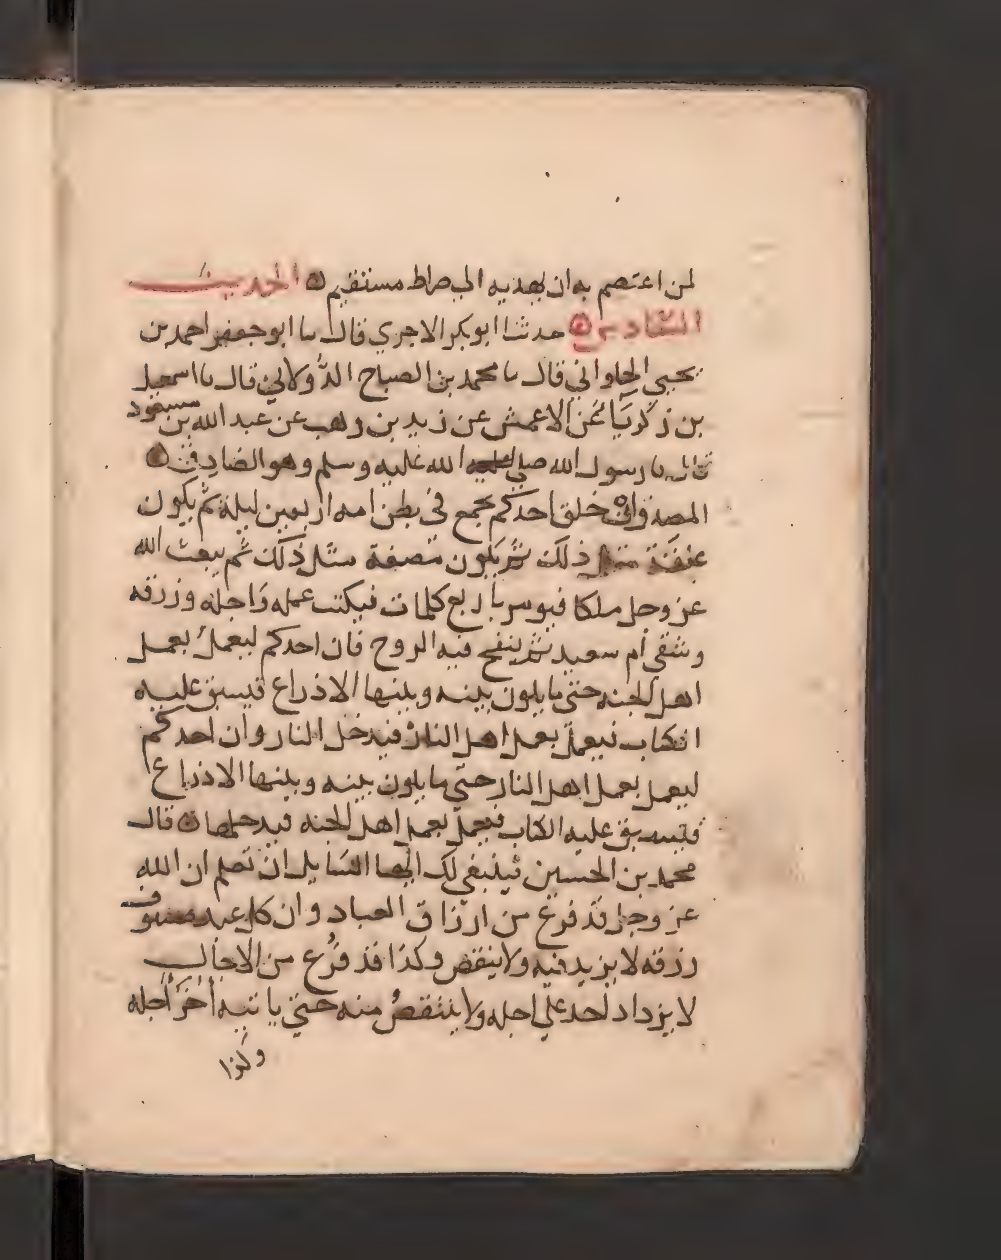 لمن اعتصم به ان يهديه الي صراط مستقيم ۞ الحديث
السّادس ۞ حدثنا ابو بكر الاجري قال نا ابو جعفر احمد بن
يحيي الحلواني قال نا محمد بن الصباح الدُّولابيّ قال نا اسمعيل
بن زكريّا عن الاعمش عن زيد بن وهب عن عبد الله بن مسعود
قال نا رسول الله صلي الله عليه وسلم وهو الصادق ۞
المصدوق ان خلق احدكم يجمع في بطن امه اربعين ليلة ثم يكون
علقة مثل ذلك ثم يكون مضغة مثل ذلك ثم يبعث الله
عز وجل ملكا فيومر باربع كلمات فيكتب عمله واجله ورزقه
وشقي ام سعيد ثم ينفخ فيه الروح فان احدكم ليعمل بعمل
اهل الجنه حتي ما يكون بينه وبينها الا ذراع فيسبق عليه
الكتاب فيعمل بعمل اهل النار فيدخل النار وان احدكم
ليعمل بعمل اهل النار حتي ما يكون بينه وبينها الا ذراع
فيسبق عليه الكتاب فيعمل بعمل اهل الجنه فيدخلها ۞ قال
محمد بن الحسين فينبغي لك ايها السّايل ان تعلم ان الله
عز وجل قد فرغ من ارزاق العباد وان كل عبد مستوف
رزقه لا يزيد فيه ولا ينقص وكذا قد فرغ من الاجال
لا يزداد احد علي اجله ولا ينتقص منه حتي ياتيه اخر اجله
وكذا